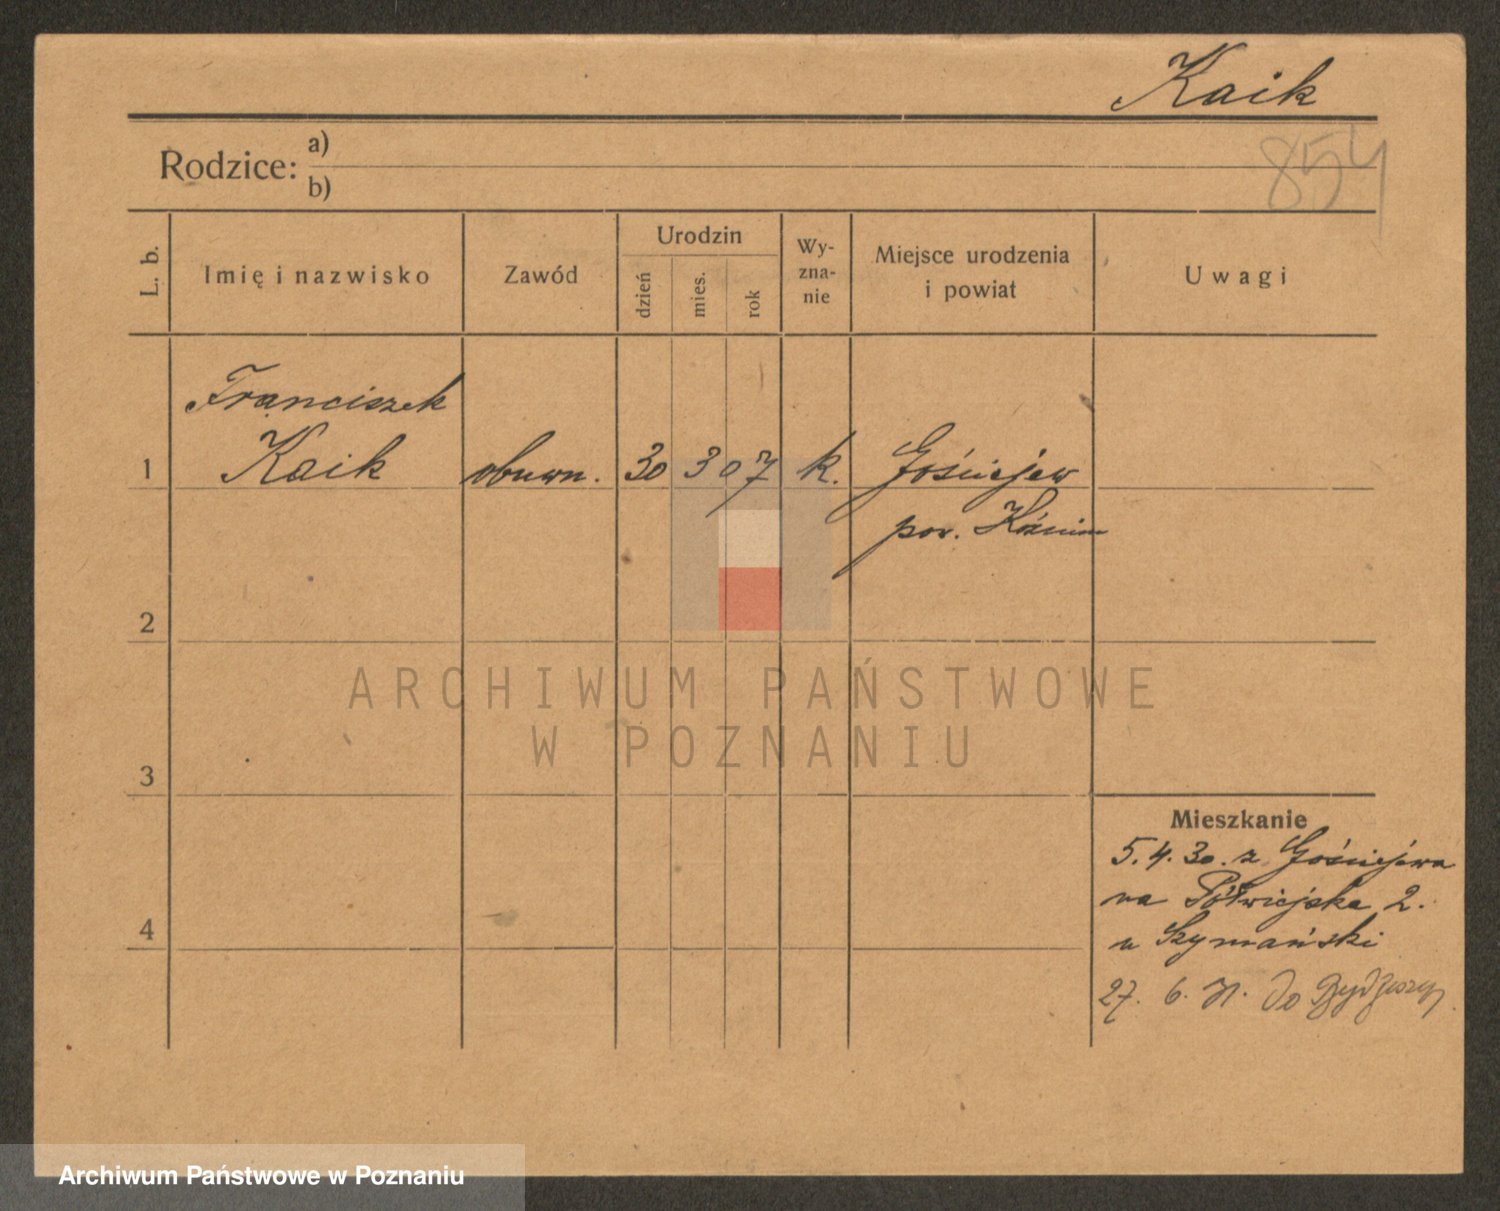 Kaik
854
Rodzice: a)
b)
L. b.
Imię i nazwisko
Zawód
Urodzin
dzień
mies.
rok
Wy-
zna-
nie
Miejsce urodzenia
i powiat
Uwagi
Franciszek
1 Kaik obuwn. 30 3 07 k. Gościejew
pow. Koźmin
2
ARCHIWUM PAŃSTWOWE
W POZNANIU
3
Mieszkanie
5.4.30. z Gościejewa
na Półwiejska 2.
4 u Szymański
27. 6. do
Archiwum Państwowe w Poznaniu